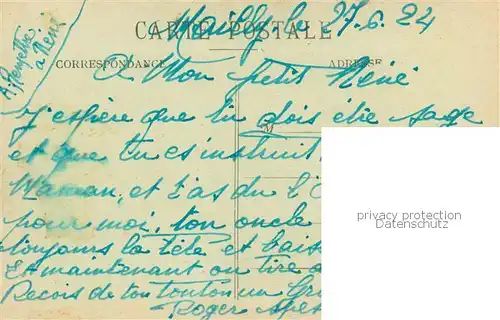 A Remettre
à René
Mailly, le 27.6.24
CARTE POSTALE
CORRESPONDANCE
ADRESSE
A Mon petit René
J'espère que tu dois être sage
et que tu es instruit
Maman, et t'as du
pour moi, ton oncle
toujours la tête et
Et maintenant on tire
Reçois de ton tonton un
Roger
privacy protection
Datenschutz